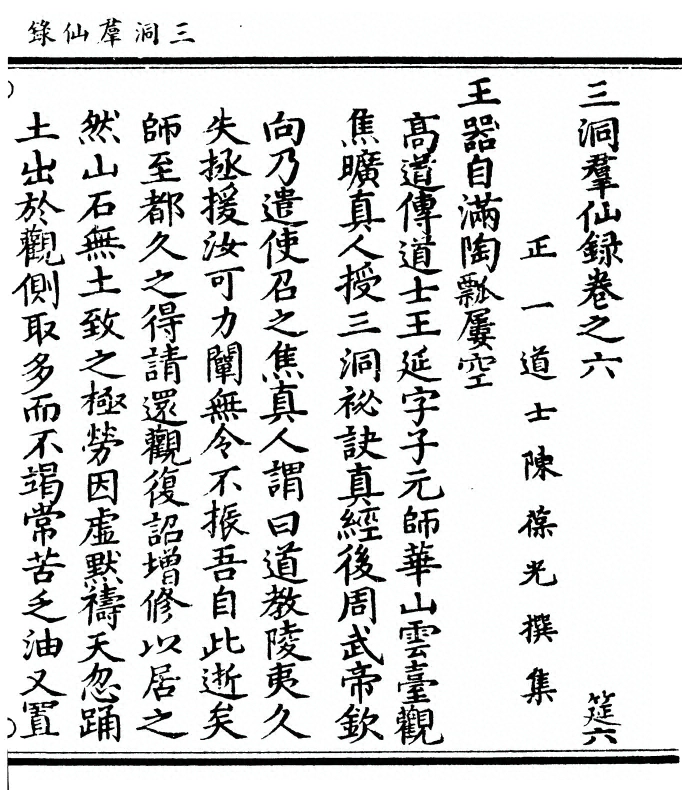 三洞羣仙錄
三洞羣仙録卷之六
筵六
正一道士陳葆光撰集
王器自滿陶瓢屢空
高道傳道士王延字子元師華山雲臺觀
焦曠真人授三洞祕訣真經後周武帝欽
向乃遣使召之焦真人謂曰道教陵夷久
失拯援汝可力闡無令不振吾自此逝矣
師至都久之得請還觀復詔增修以居之
然山石無土致之極勞因虛默禱天忽踊
土出於觀側取多而不竭常苦乏油又置